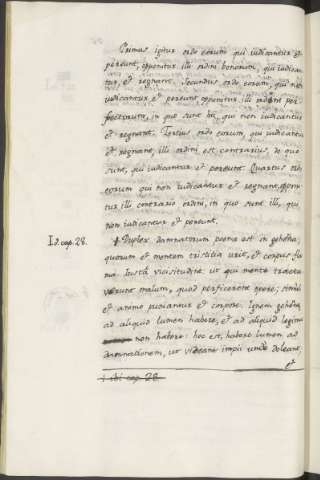 Primus igitur ordo eorum qui iudicantur et
pereunt, opponitur illi ordini bonorum, qui iudican
tur, et regnant. Secundus ordo eorum, qui non
iudicantur et pereunt opponitur illi ordini per
fectorum, in quo sunt hi, qui non iudicantur
et regnant. Tertius ordo eorum, qui iudicantur
et regnant, illi ordini est contrarius, in quo
sunt, qui iudicantur et pereunt. Quartus ordo
eorum qui non iudicantur et regnant, oponi
tur illi contrario ordini, in quo sunt illi, qui
non iudicantur et pereunt.
Id. cap. 28. Duplex damnatorum poena est in gehenna,
quorum et mentem tristitia urit, et corpus fla
ma. Iusta vicisitudine ut qui mente tracta
verunt malum, quod perficerent opere, simul
et animo puniantur et corpore. Ignem gehennae
ad aliquid lumen habere, et ad aliquid legima
non habere: hoc est, habere lumen ad
damnationem, ut videant impii unde doleant,
et
ibi cap. 28.